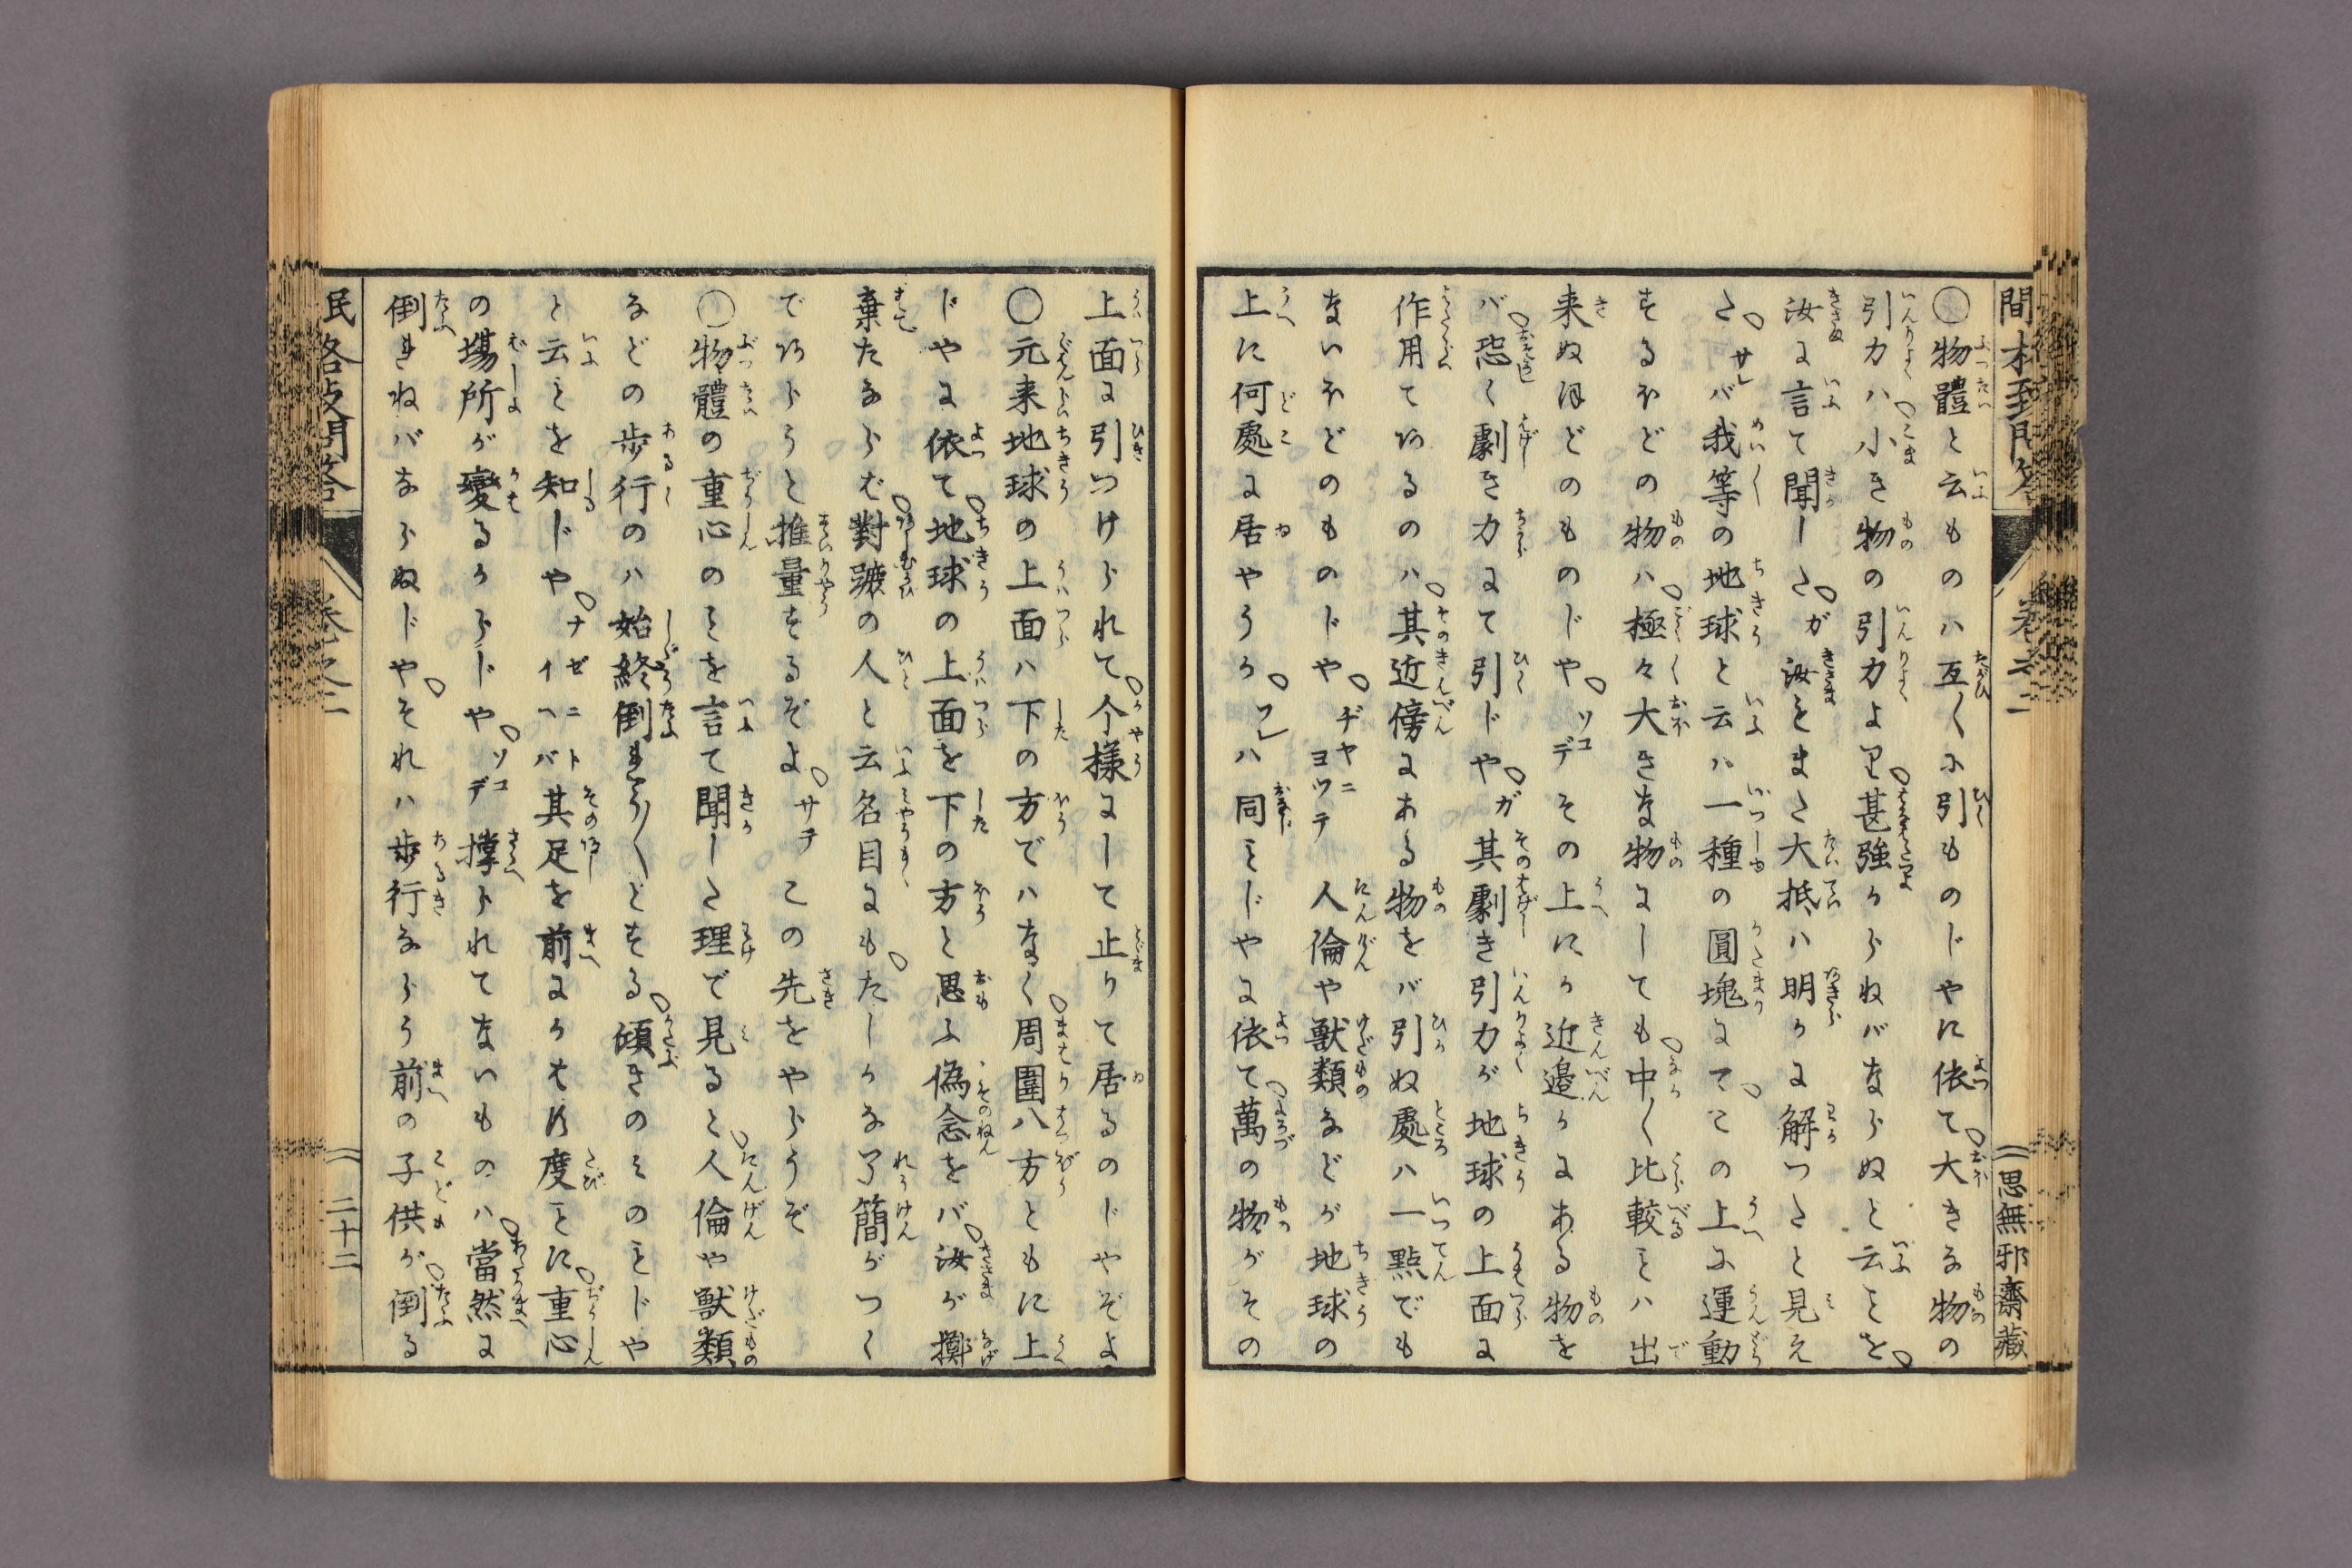 ○物體と云ものハ互〱に引ものじやに依て大きな物の
引力ハ小き物の引力より甚強からねバならぬと云ことを
汝に言て聞した。ガ汝もまた大抵ハ明かに解つたと見え
た。サレバ我等の地球と云ハ一種の圓塊にてこの上に運動
するほどの物ハ極々大きな物にしても中〱比較ことハ出
来ぬほどのものじや。ソコデその上にか近邉かにある物を
バ恐く劇き力にて引じや。ガ其劇き引力が地球の上面に
作用てゐるのハ其近傍にある物をバ引ぬ處ハ一點でも
ないほどのものじや。ヂヤニヨツテ人倫や獣類などが地球の
上に何處に居やうか。ソレハ同ことじやに依て萬の物がその
思無邪齋藏
上面に引つけられて个様にして止りて居るのじやぞよ
○元来地球の上面ハ下の方でハなく周圍八方ともに上
じやに依て地球の上面を下の方と思ふ偽念をバ汝が擲
棄たならば對蹠の人と云名目にもたしかな了簡がつく
でゐらうと推量をるぞよ。サテこの先をやらうぞ
○物體の重心のことを言て聞した理で見ると人倫や獣類
などの歩行のハ始終倒れう〱とする傾きのそのことじや
と云ことを知じや。ナゼニトイヘバ其足を前にかはす度ごとに重心
の場所が變るからじや。ソコデ撑られてないものハ當然に
倒れねバならぬじや。それハ歩行ならう前の子供が倒る
二十二